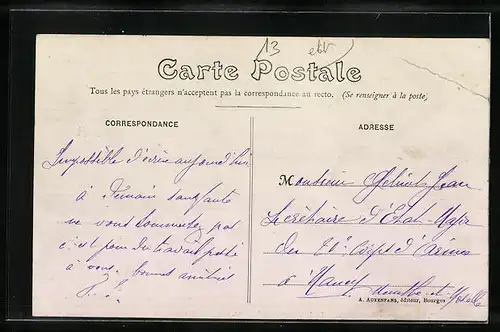 13
Carte Postale
Tous les pays étrangers n'acceptent pas la correspondance au recto. (Se renseigner à la poste)
CORRESPONDANCE
ADRESSE
Impossible d'écrire aujourd'hui
à demain sans faute
ne vous tourmentez pas
c'est pour du travail
à vous. bonnes amitiés
Monsieur Jean
Secrétaire d'Etat-Major
du 20e Corps d'Armée
à Nancy
Meurthe-et-Moselle
A. AUXENFANS, éditeur, Bourges